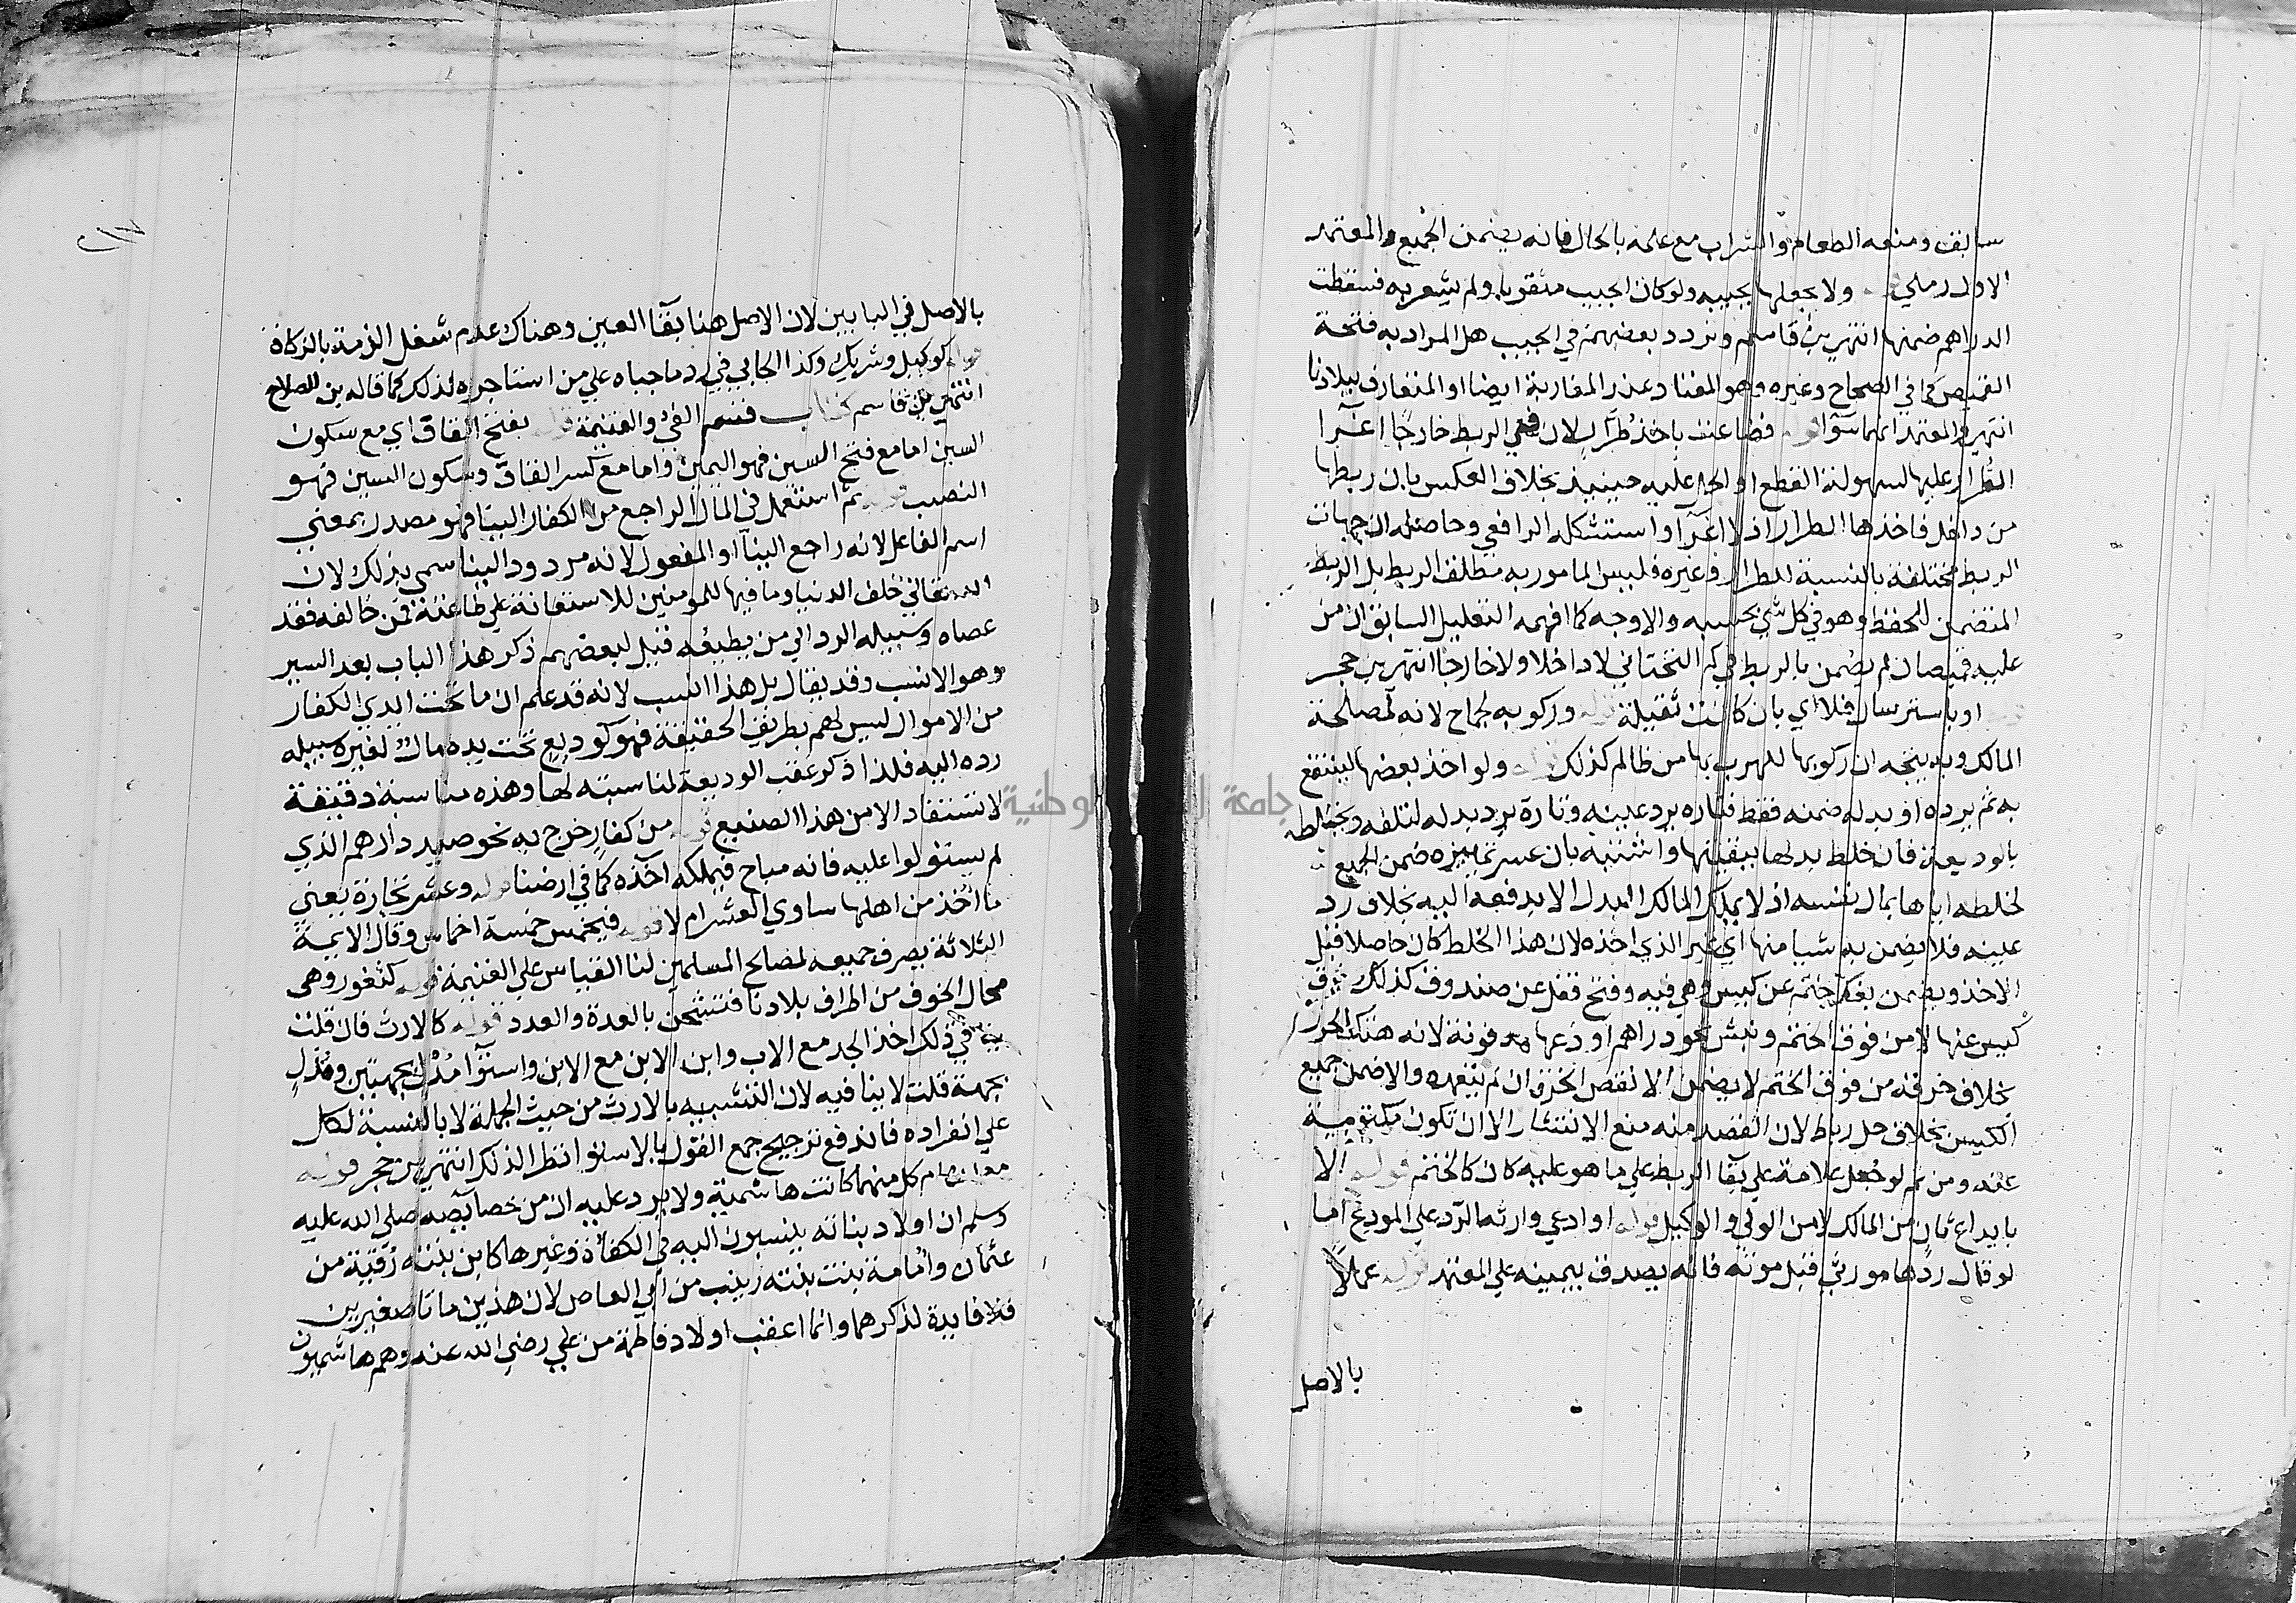 سابق ومنعه الطعام والشراب مع علمه بالحال فانه يضمن الجميع والمعتمد
الاول رملي ولا بجعلها بجيبه ولو كان الجيب مثقوبا ولم يشعر به فسقطت
الدراهم ضمنها انتهي بن قاسم وتردد بعضهم في الجيب هل المراد به فتحة
القميص كما في الصحاح وغيره وهو المعتاد عند المغاربة ايضا او المتعارف ببلادنا
انتهي والمعتمد انهما سوآ قوله فضاعت باخذ طرار لان في الربط خارجا اغرآ
الطرار عليها لسهولة القطع او الحل عليه حينيذ بخلاف العكس بان ربطها
من داخل فاخذها الطرار اذ لا اغرآ واستشكله الرافعي وحاصله ان جهات
الربط مختلفة بالنسبة للطرار وغيره فليس المامور به مطلق الربط بل الربط
المتضمن للحفظ وهو في كل شي بحسبه والاوجه كما افهمه التعليل السابق ان من
عليه قميصان لم يضمن بالربط في كم التحتاني لا داخلا ولا خارجا انتهي بن حجر
او باسترسال فلا اي بان كانت ثقيلة قوله وركوبه لجماح لانه لمصلحة
المالك وبه يتجه ان ركوبها للهرب بها من ظالم كذلك قوله ولو اخذ بعضها لينتفع
به ثم يرده او بدله ضمنه فقط فتاره يرد عينه وتارة يرد بدله لتلفه ويختلطه
بالوديعة فان خلط بدلها ببقيتها واشتبه بان عسر تمييزه ضمن الجميع
لخلطه اياها بمال نفسه اذ لا يملك المالك البدل الا بدفعه اليه بخلاف رد
عينه فلا يضمن به شيا منها اي غير الذي اخذه لان هذا الخلط كان حاصلا قبل
الاخذ ويضمن بفك ختم عن كيس وهي فيه وفتح قفل عن صندوق كذلك
كيس عنها لا من فوق الختم ونبش نحو دراهم اودعها مدفونة لانه هتك الحرز
بخلاف خرقه من فوق الختم لا يضمن الا نقص الخرق ان لم يتعمده والا ضمن جميع
الكيس بخلاف حل رباط لان القصد منه منع الانتشار الا ان تكون مكتومية
عنه ومن ثم لو جعل علامة علي بقا الربط علي ما هو عليه كان كالختم قوله الا
بايداع ثان من المالك لا من الولي والوكيل قوله او ادعي وارثه الرد علي المودع اما
لو قال ردها مورثي قبل موته فانه يصدق بيمينه علي المعتمد قوله عملا
بالاصل
٢١٧
بالاصل في البابين لان الاصل هنا بقآ العين وهناك عدم شغل الذمة بالزكاة
قوله كوكيل وشريك وكذا الجابي في رد ما جباه علي من استاجره لذلك كما قاله بن الصلاح
انتهي بن قاسم كتاب قسم الفئ والغنيمة قوله بفتح القاف اي مع سكون
السين اما مع فتح السين فهو اليمين واما مع كسر القاف وسكون السين فهو
النصيب قوله ثم استعمل في المال الراجع من الكفار الينا فهو مصدر بمعني
اسم الفاعل لانه راجع الينا او المفعول لانه مردود الينا سمي بذلك لان
الله تعالي خلق الدنيا وما فيها للمومنين للاستعانة علي طاعته فمن خالفه فقد
عصاه وسبيله الرد الي من يطيعه قيل لبعضهم ذكر هذا الباب بعد السير
وهو الانسب وقد يقال بل هذا انسب لانه قد علم ان ما تحت ايدي الكفار
من الاموال ليس لهم بطريق الحقيقة فهو كوديع تحت يده مال لغيره سبيله
رده اليه فلذا ذكر عقب الوديعة لمناسبته لها وهذه مناسبة دقيقة
لا تستفاد الا من هذا الصنيع قوله من كفار خرج به نحو صيد دارهم الذي
لم يستولوا عليه فانه مباح فيملكه آخذه كما في ارضنا قوله وعشر تجارة يعني
ما اخذ من اهلها ساوي العشر ام لا قوله فيخمس خمسة اخماس وقال الايمة
الثلاثة يصرف جميعه لمصالح المسلمين لنا القياس علي الغنيمة قوله كثغور وهي
محال الخوف من اطراف بلادنا فتشحن بالعدة والعدد قوله كالارث فان قلت
في ذلك اخذ الجد مع الاب وابن الابن مع الابن واستوآ مدل بجهتين ومدل
بجهة قلت لا ينافيه لان التشبيه بالارث من حيث الجملة لا بالنسبة لكل
علي انفراده فاندفع ترجيح جمع القول بالاستوا نظرا لذلك انتهي بن حجر قوله
مع ان ام كل منهما كانت هاشمية ولا يرد عليه ان من خصآيصه صلي الله عليه
وسلم ان اولاد بناته ينسبون اليه في الكفآة وغيرها كابن بنته رقية من
عثمان وأمامة بنت بنته زينب من ابي العاص لان هذين ماتا صغيرين
فلا فايدة لذكرهما وانما اعقب اولاد فاطمة من علي رضي الله عنه وهم هاشميون